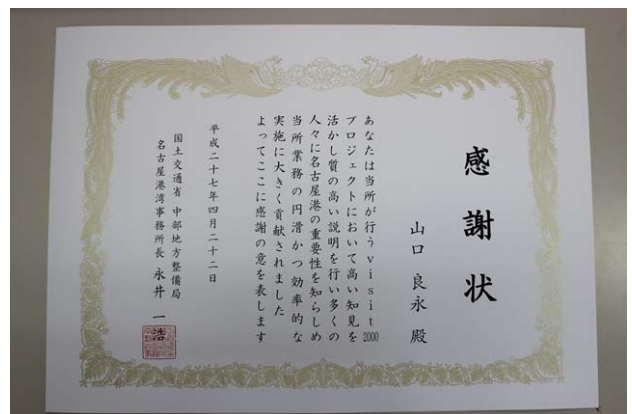 感謝状
山口 良永 殿
あなたは当所が行うvisit2000
プロジェクトにおいて高い知見を
活かし質の高い説明を行い多くの
人々に名古屋港の重要性を知らしめ
当所業務の円滑かつ効率的な
実施に大きく貢献されました
よってここに感謝の意を表します
平成二十七年四月二十二日
国土交通省 中部地方整備局
名古屋港湾事務所長 永井 一浩